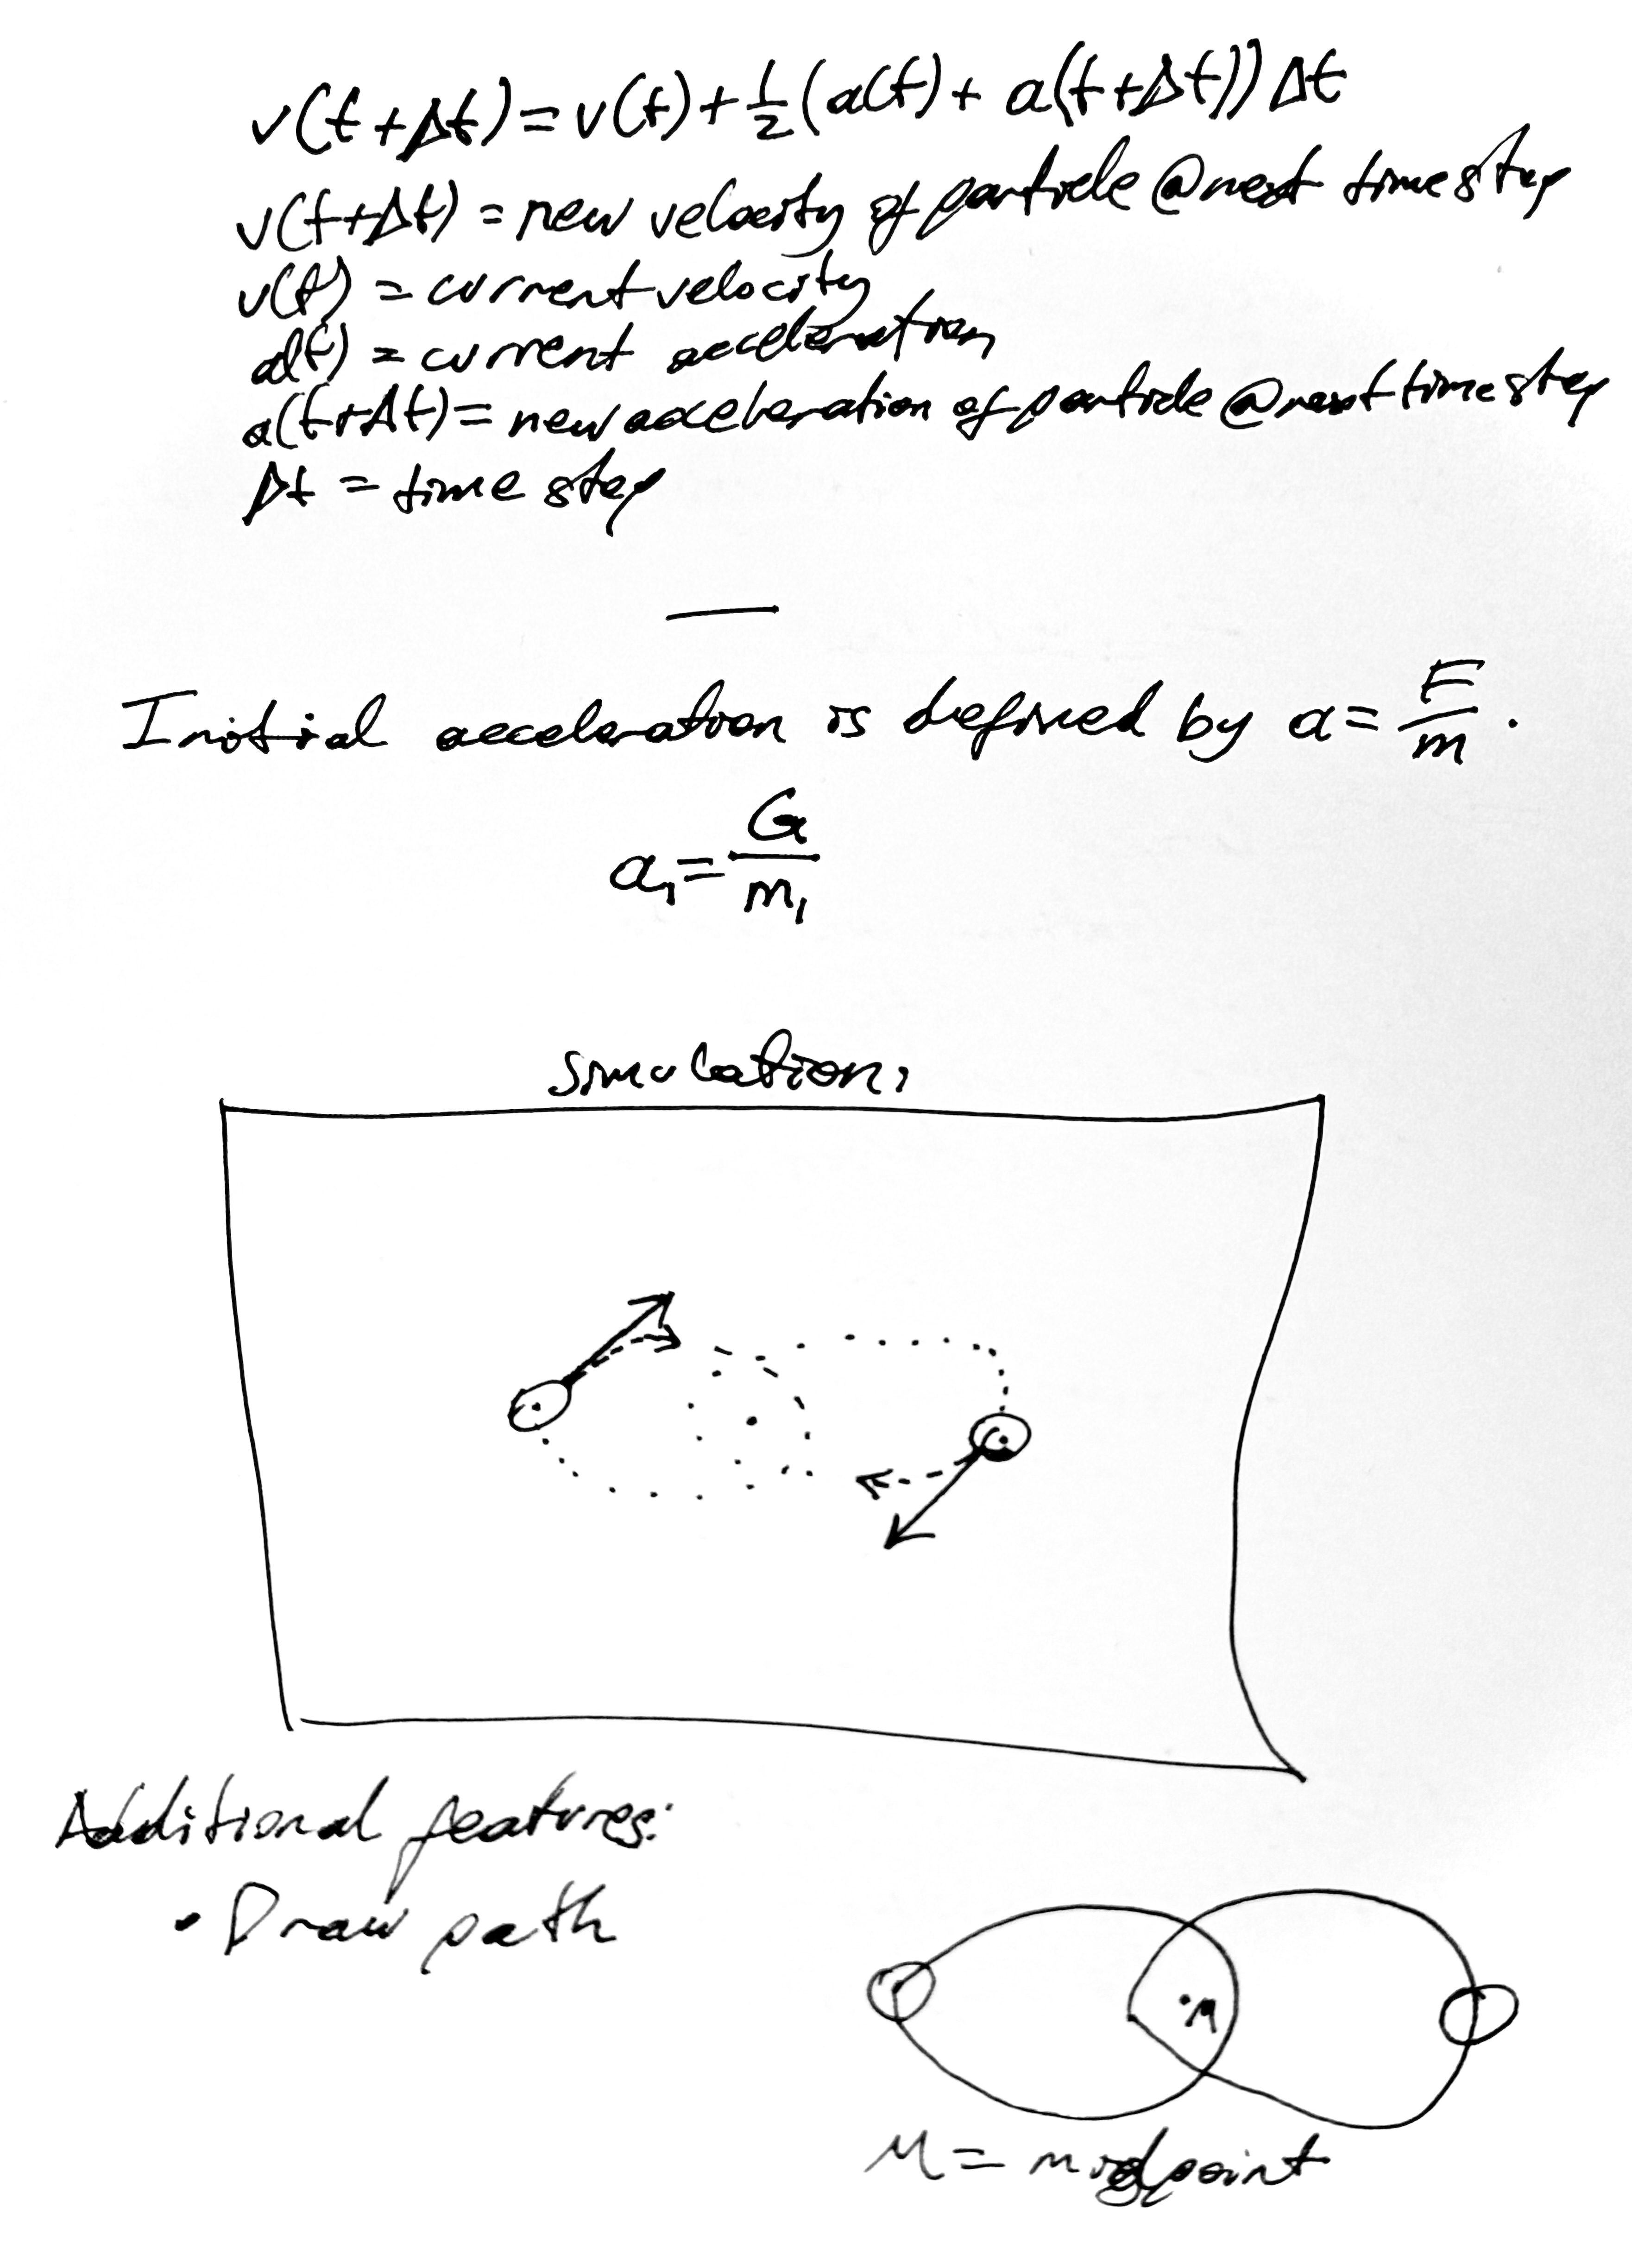 v(t+Δt) = v(t) + 1/2 (a(t) + a(t+Δt)) Δt
v(t+Δt) = new velocity of particle @ next time step
v(t) = current velocity
a(t) = current acceleration
a(t+Δt) = new acceleration of particle @ next time step
Δt = time step
Initial acceleration is defined by a = F/m.
a₁ = G/m₁
simulation:
Additional features:
• Draw path
M
M = midpoint